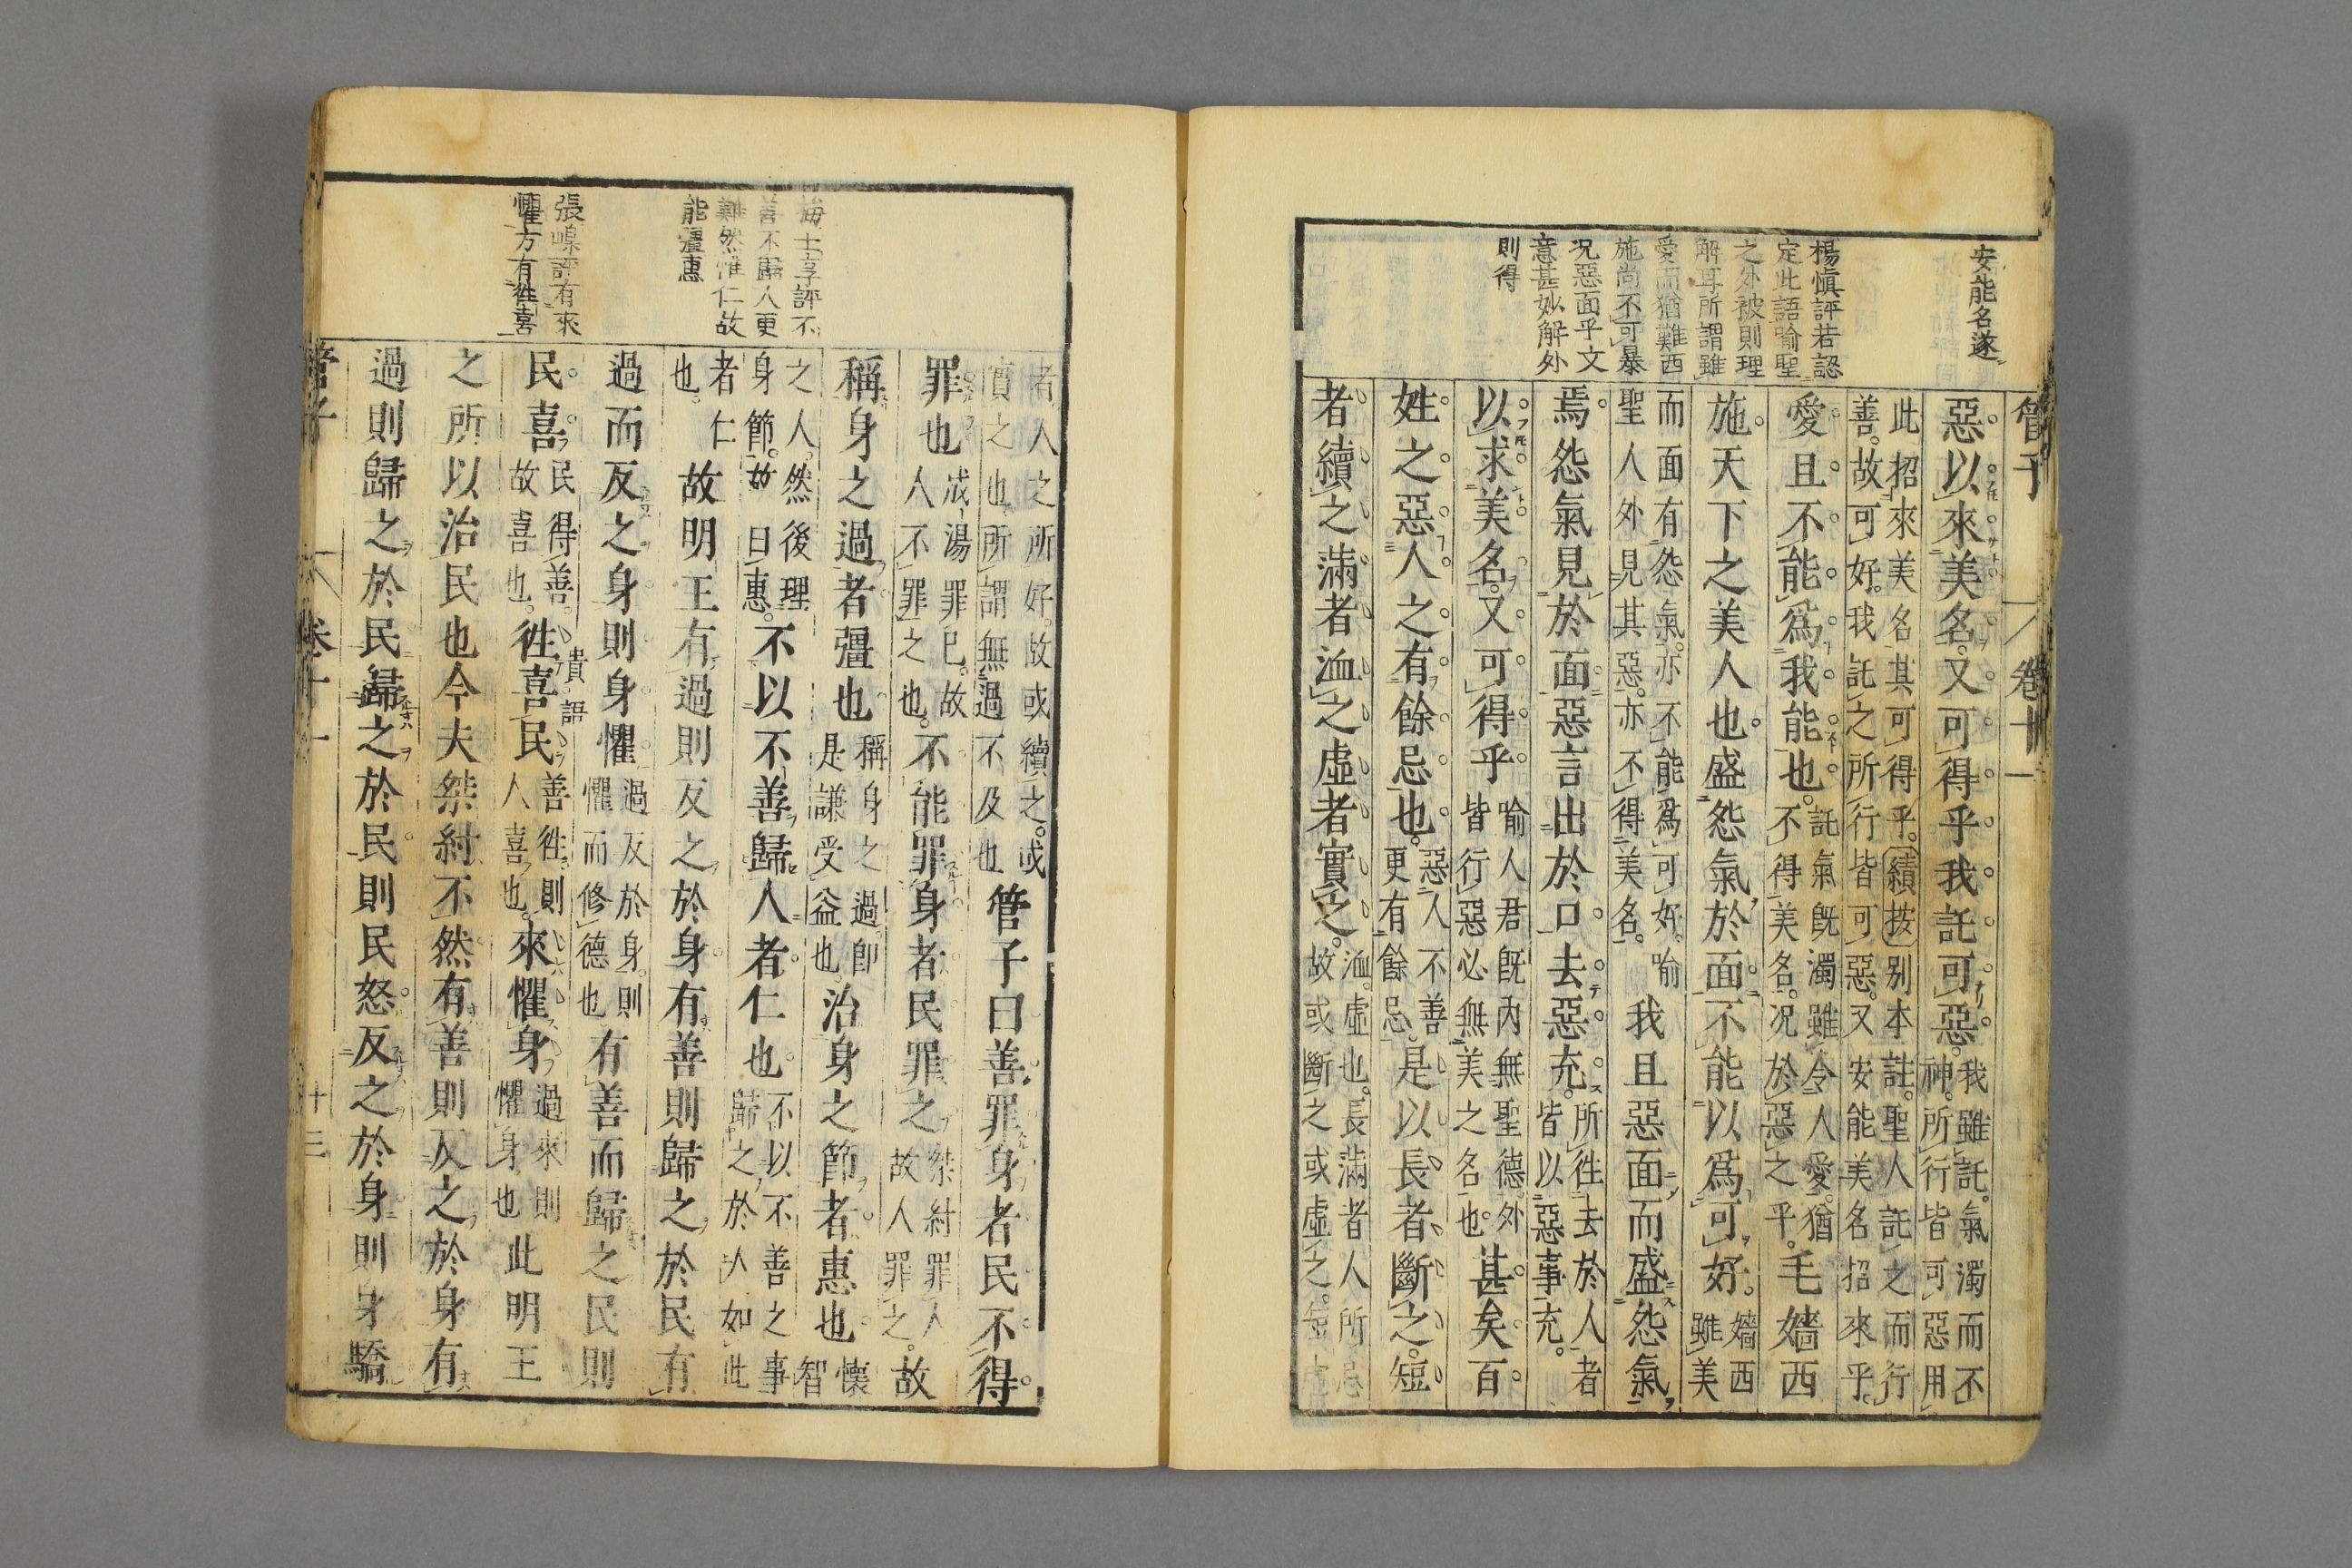 安能名遂
楊愼評若認
定此語喻聖
之外被則理
解耳所謂雖
愛而猶難西
施尚不可暴
况惡面乎文
意甚妙解外
則得
管子 卷十一
惡以來美名又可得乎我託可惡我雖託氣濁而不神所行皆可惡用
此招來美名其可得乎續按別本註聖人託之而行
善故可好我託之所行皆可惡又安能美名招來乎
愛且不能爲我能也託氣旣濁雖令人愛猶不得美名况於惡之乎毛嬙西
施天下之美人也盛怨氣於面不能以爲可好嬙西雖美
而面有怨氣亦不能爲可好喻聖人外見其惡亦不得美名我且惡面而盛怨氣
焉怨氣見於面惡言出於口去惡充所徃去於人者皆以惡事充
以求美名又可得乎喻人君旣內無聖德外皆行惡必無美之名也甚矣百
姓之惡人之有餘忌也惡人不善更有餘忌是以長者斷之短
者續之滿者洫之虛者實之洫虛也長滿者人所忌故或斷之或虛之短
者人之所好故或續之或
實之也所謂無過不及也管子曰善罪身者民不得
罪也成湯罪已故人不罪之也不能罪身者民罪之桀紂罪人故人罪之故
稱身之過者彊也稱身之過卽是謙受益也治身之節者惠也懷智
之人然後理身節故曰惠不以不善歸人者仁也不以不善之事歸之於人如此
者仁也故明王有過則反之於身有善則歸之於民有
過而反之身則身懼過反於身則懼而修德也有善而歸之民則
民喜民得善故喜也徃喜民善徃則人喜也來懼身過來則懼身也此明王
之所以治民也今夫桀紂不然有善則反之於身有
過則歸之於民歸之於民則民怒反之於身則身驕
責語
梅士享評不
善不歸人更
難然惟仁故
能彊惠
張嵲評有來
懼方有徃喜
管子 卷十一 十三